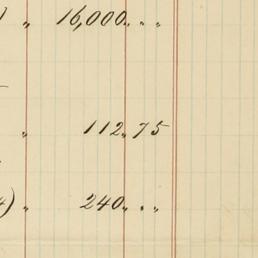 ) „ 16,000 „ „
„ 112.75
4) „ 240 „ „